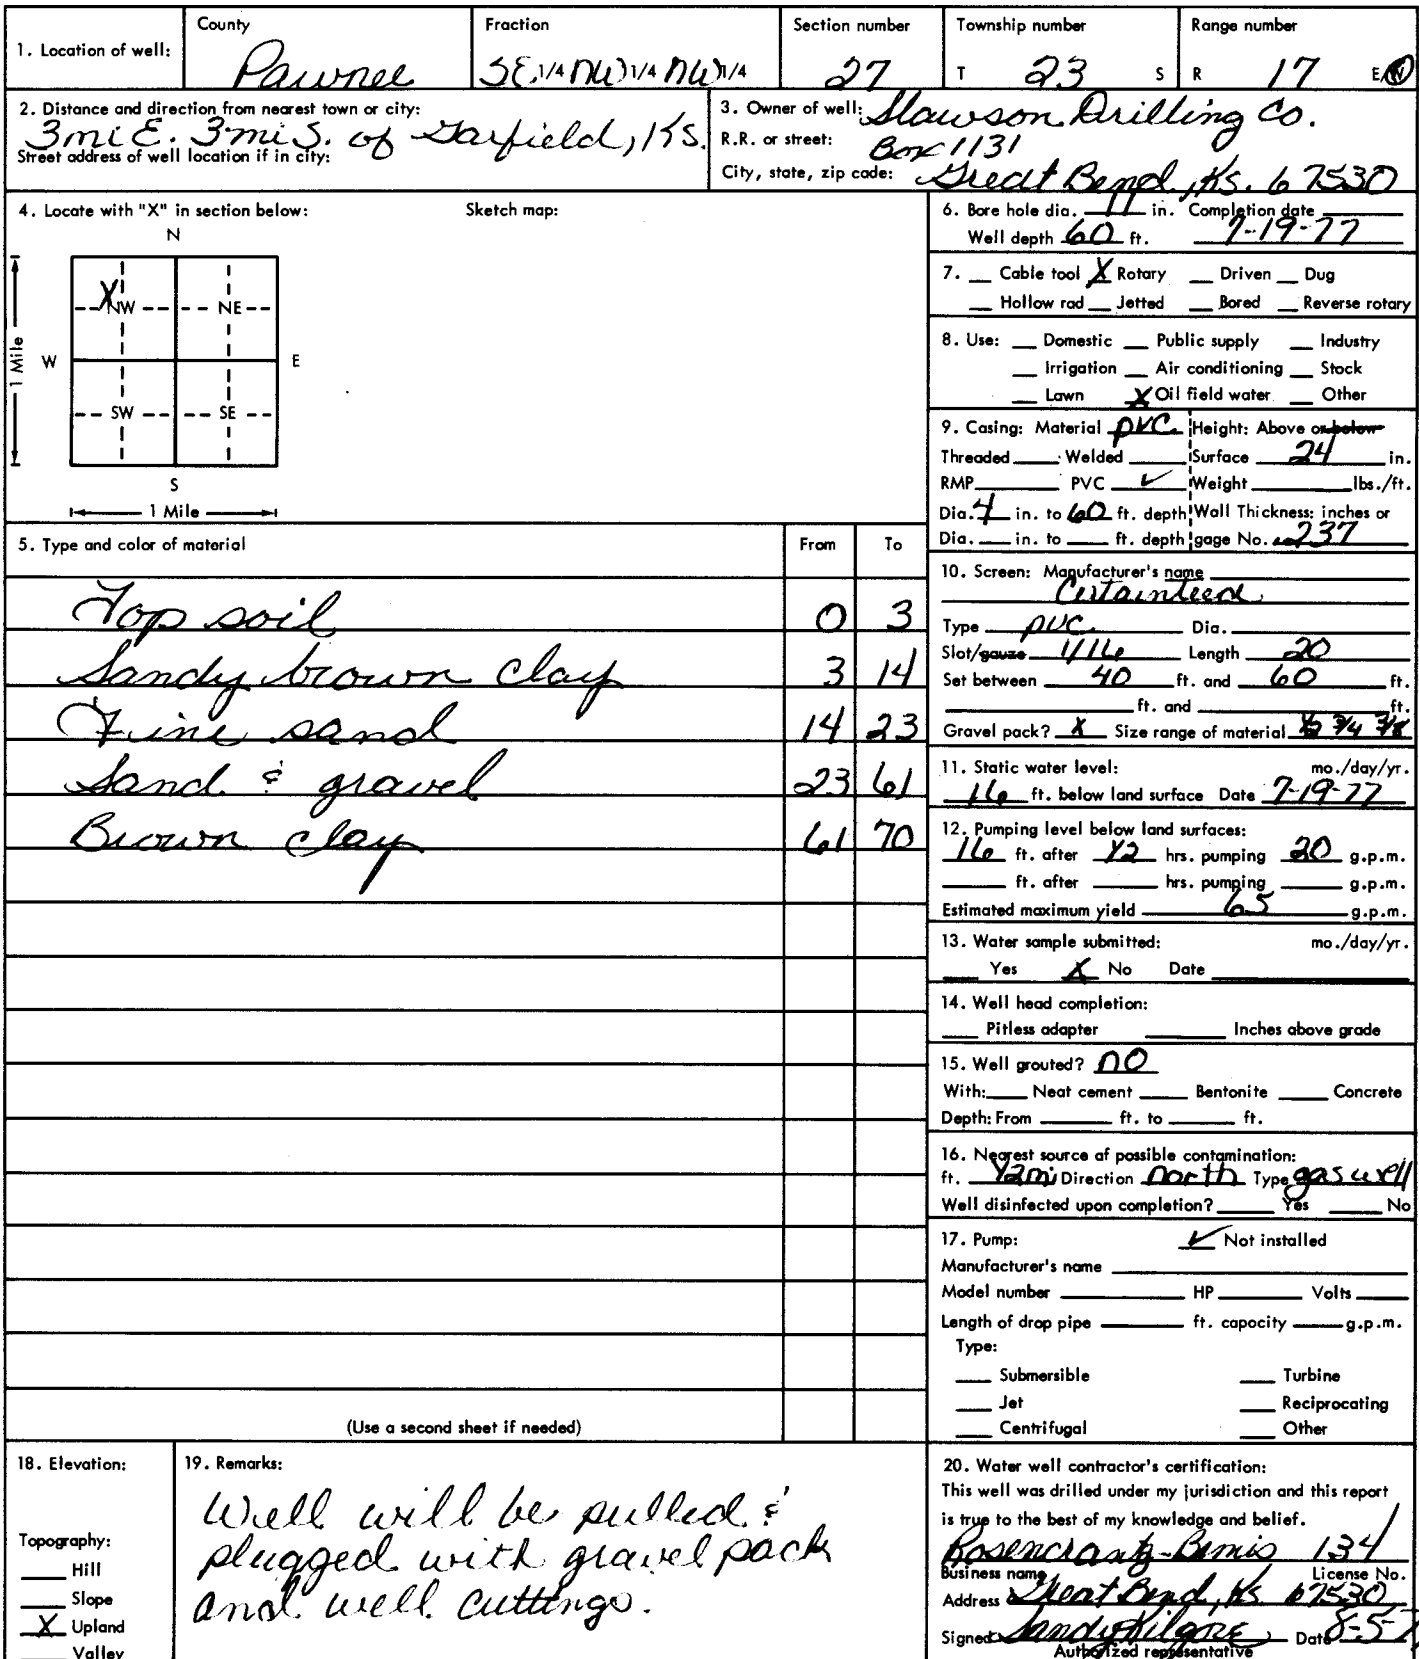 1. Location of well: County Pawnee Fraction SE 1/4 NW 1/4 NW 1/4 Section number 27 Township number T 23 S Range number R 17 E/W
2. Distance and direction from nearest town or city: 3 mi E. 3 mi S. of Garfield, Ks.
Street address of well location if in city:
3. Owner of well: Slawson Drilling Co.
R.R. or street: Box 1131
City, state, zip code: Great Bend, Ks. 67530
4. Locate with "X" in section below: Sketch map:
N
X
NW NE
W E
1 Mile
SW SE
S
1 Mile
5. Type and color of material From To
Top soil 0 3
Sandy brown clay 3 14
Fine sand 14 23
Sand & gravel 23 61
Brown clay 61 70
(Use a second sheet if needed)
6. Bore hole dia. 11 in. Completion date
Well depth 60 ft. 7-19-77
7. __ Cable tool X Rotary __ Driven __ Dug
__ Hollow rad __ Jetted __ Bored __ Reverse rotary
8. Use: __ Domestic __ Public supply __ Industry
__ Irrigation __ Air conditioning __ Stock
__ Lawn X Oil field water __ Other
9. Casing: Material PVC Height: Above or below
Threaded ___ Welded ___ Surface 24 in.
RMP ___ PVC ✓ Weight ___ lbs./ft.
Dia. 4 in. to 60 ft. depth Wall Thickness: inches or
Dia. ___ in. to ___ ft. depth gage No. .237
10. Screen: Manufacturer's name
Certainteed
Type PVC Dia.
Slot/gauze 1/16 Length 20
Set between 40 ft. and 60 ft.
___ ft. and ___ ft.
Gravel pack? X Size range of material 1/2 3/4 3/8
11. Static water level: mo./day/yr.
16 ft. below land surface Date 7-19-77
12. Pumping level below land surfaces:
16 ft. after 1/2 hrs. pumping 20 g.p.m.
___ ft. after ___ hrs. pumping ___ g.p.m.
Estimated maximum yield 65 g.p.m.
13. Water sample submitted: mo./day/yr.
___ Yes X No Date
14. Well head completion:
___ Pitless adapter ___ Inches above grade
15. Well grouted? no
With: ___ Neat cement ___ Bentonite ___ Concrete
Depth: From ___ ft. to ___ ft.
16. Nearest source of possible contamination:
ft. 1/2 mi Direction north Type gas well
Well disinfected upon completion? ___ Yes ___ No
17. Pump: ✓ Not installed
Manufacturer's name
Model number ___ HP ___ Volts ___
Length of drop pipe ___ ft. capacity ___ g.p.m.
Type:
___ Submersible ___ Turbine
___ Jet ___ Reciprocating
___ Centrifugal ___ Other
18. Elevation:
Topography:
___ Hill
___ Slope
X Upland
___ Valley
19. Remarks:
Well will be pulled &
plugged with gravel pack
and well cuttings.
20. Water well contractor's certification:
This well was drilled under my jurisdiction and this report
is true to the best of my knowledge and belief.
Rosencrantz-Bemis 134
Business name License No.
Address Great Bend, Ks 67530
Signed Sandy Kilgore Date 8-5-7
Authorized representative